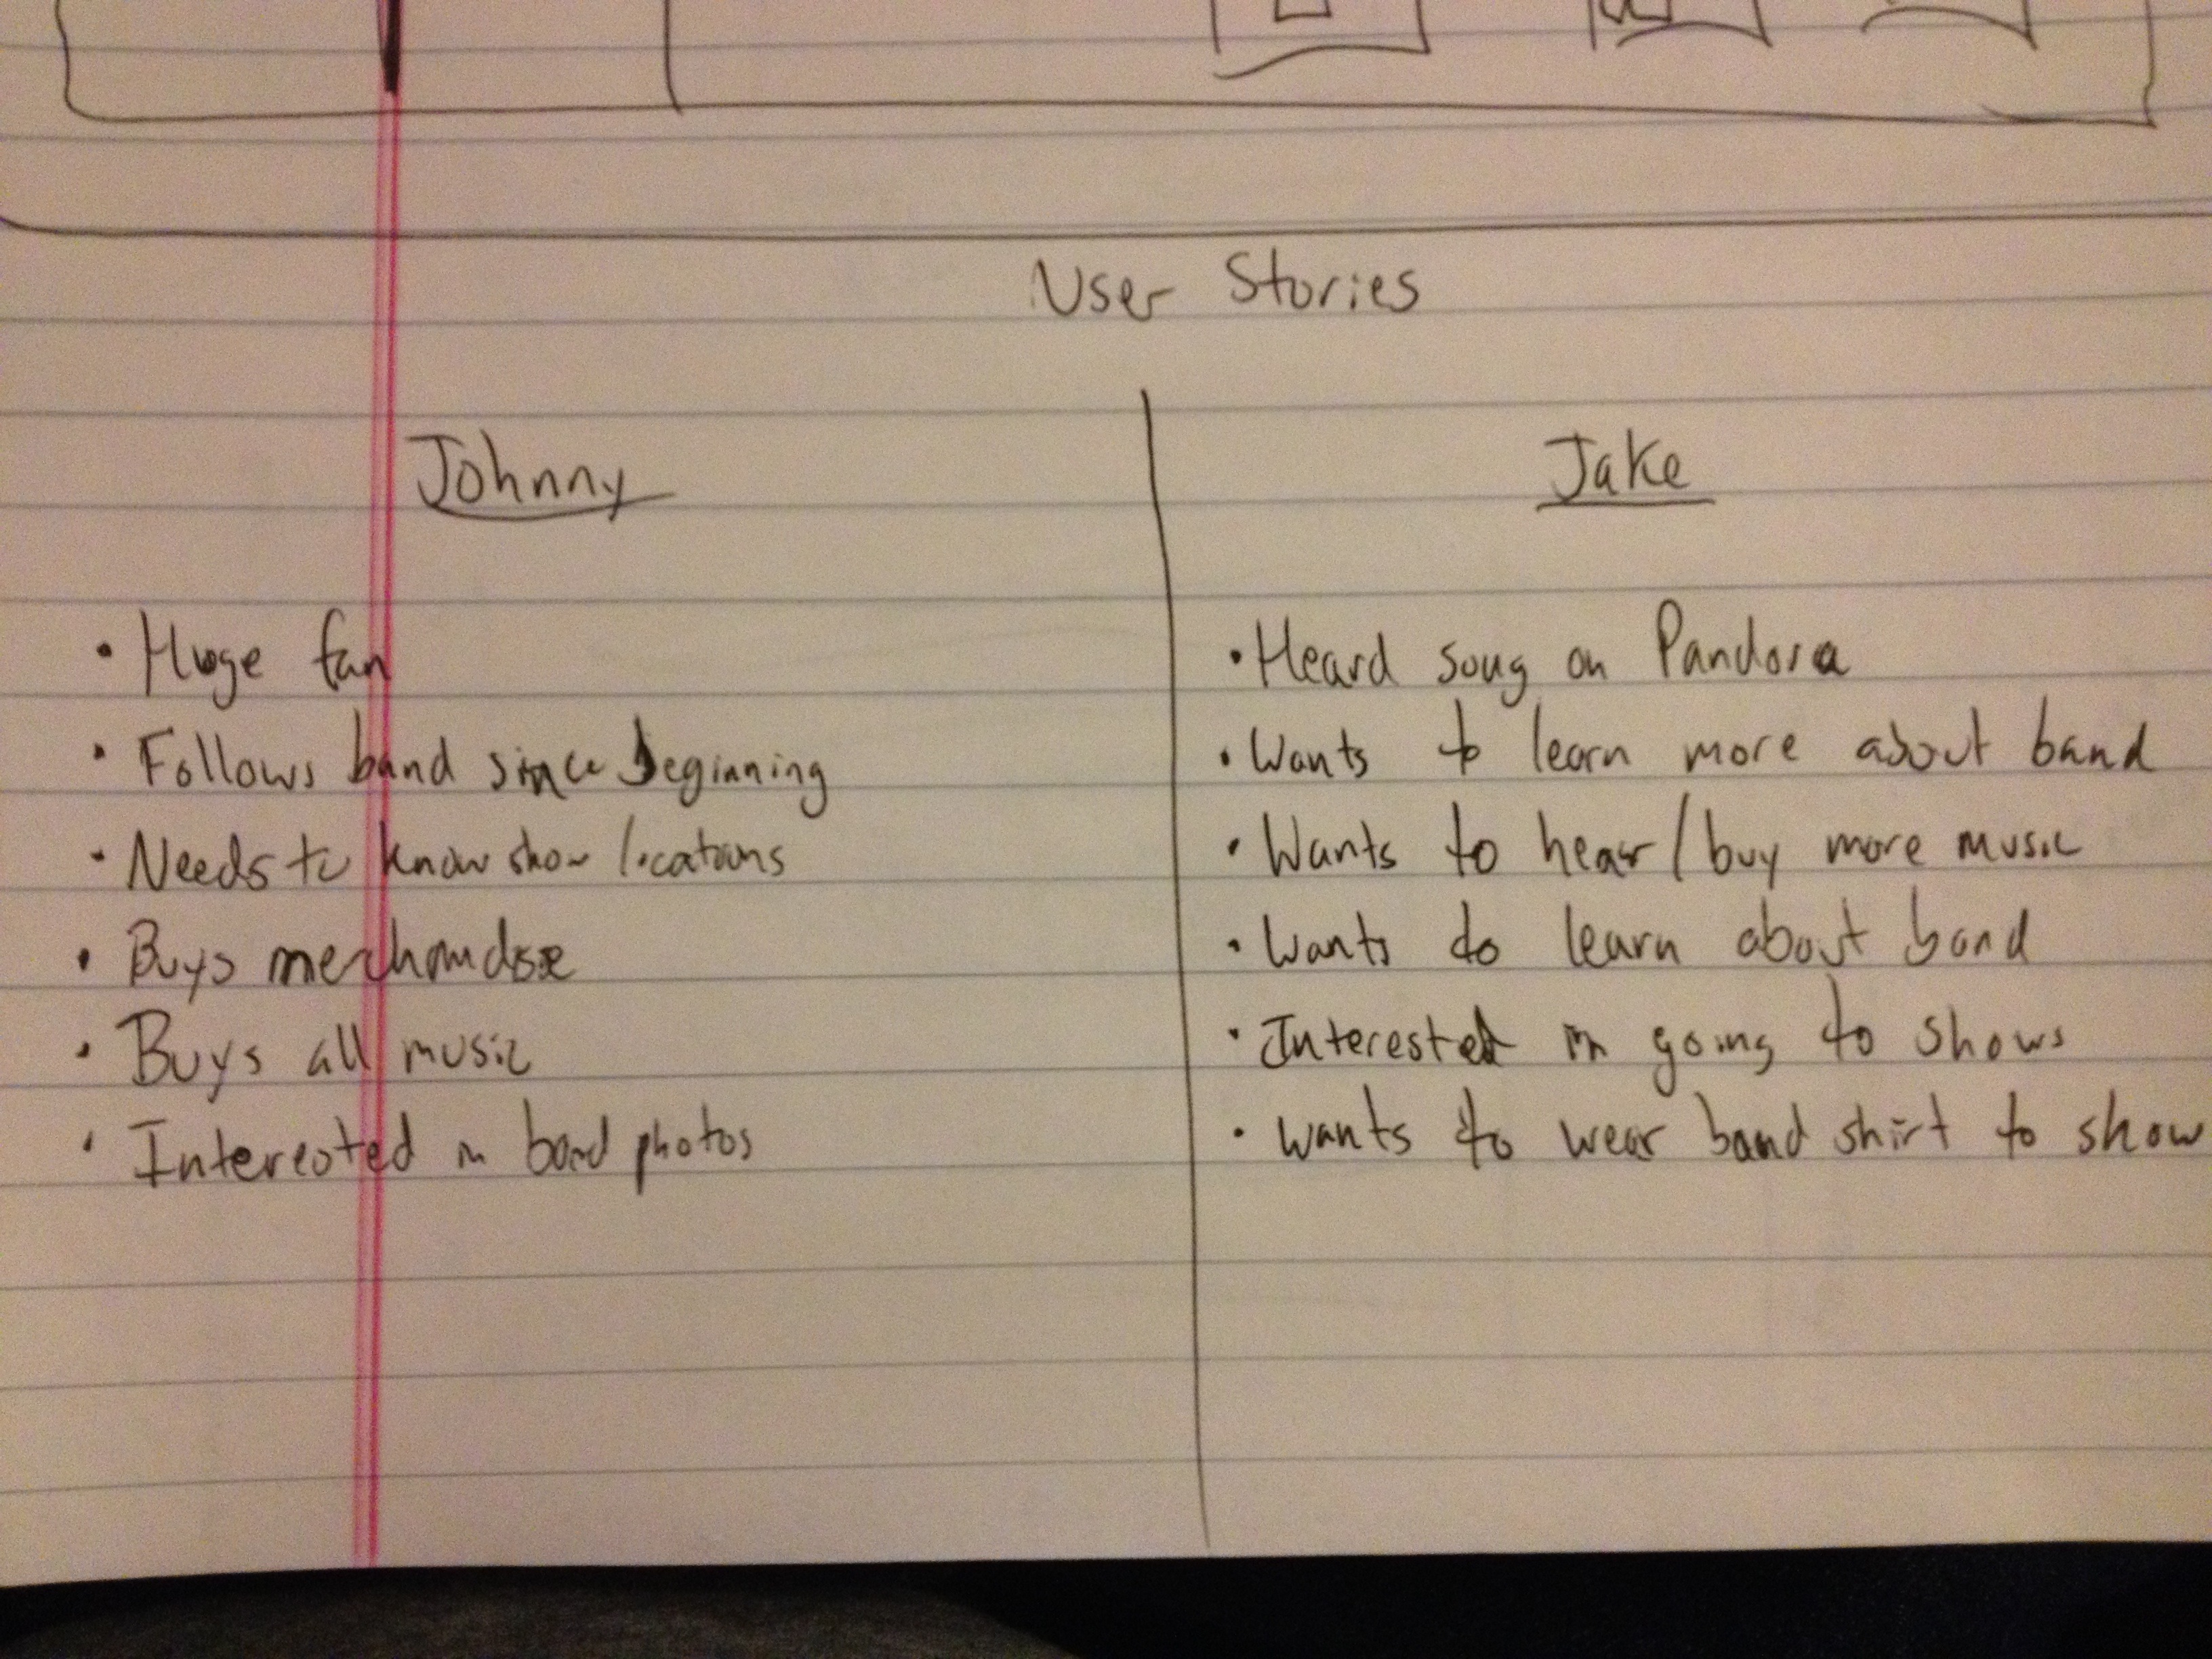 User Stories
Johnny
• Huge fan
• Follows band since beginning
• Needs to know show locations
• Buys merchandise
• Buys all music
• Interested in band photos
Jake
• Heard song on Pandora
• Wants to learn more about band
• Wants to hear/buy more music
• Wants to learn about band
• Interested in going to shows
• Wants to wear band shirt to show